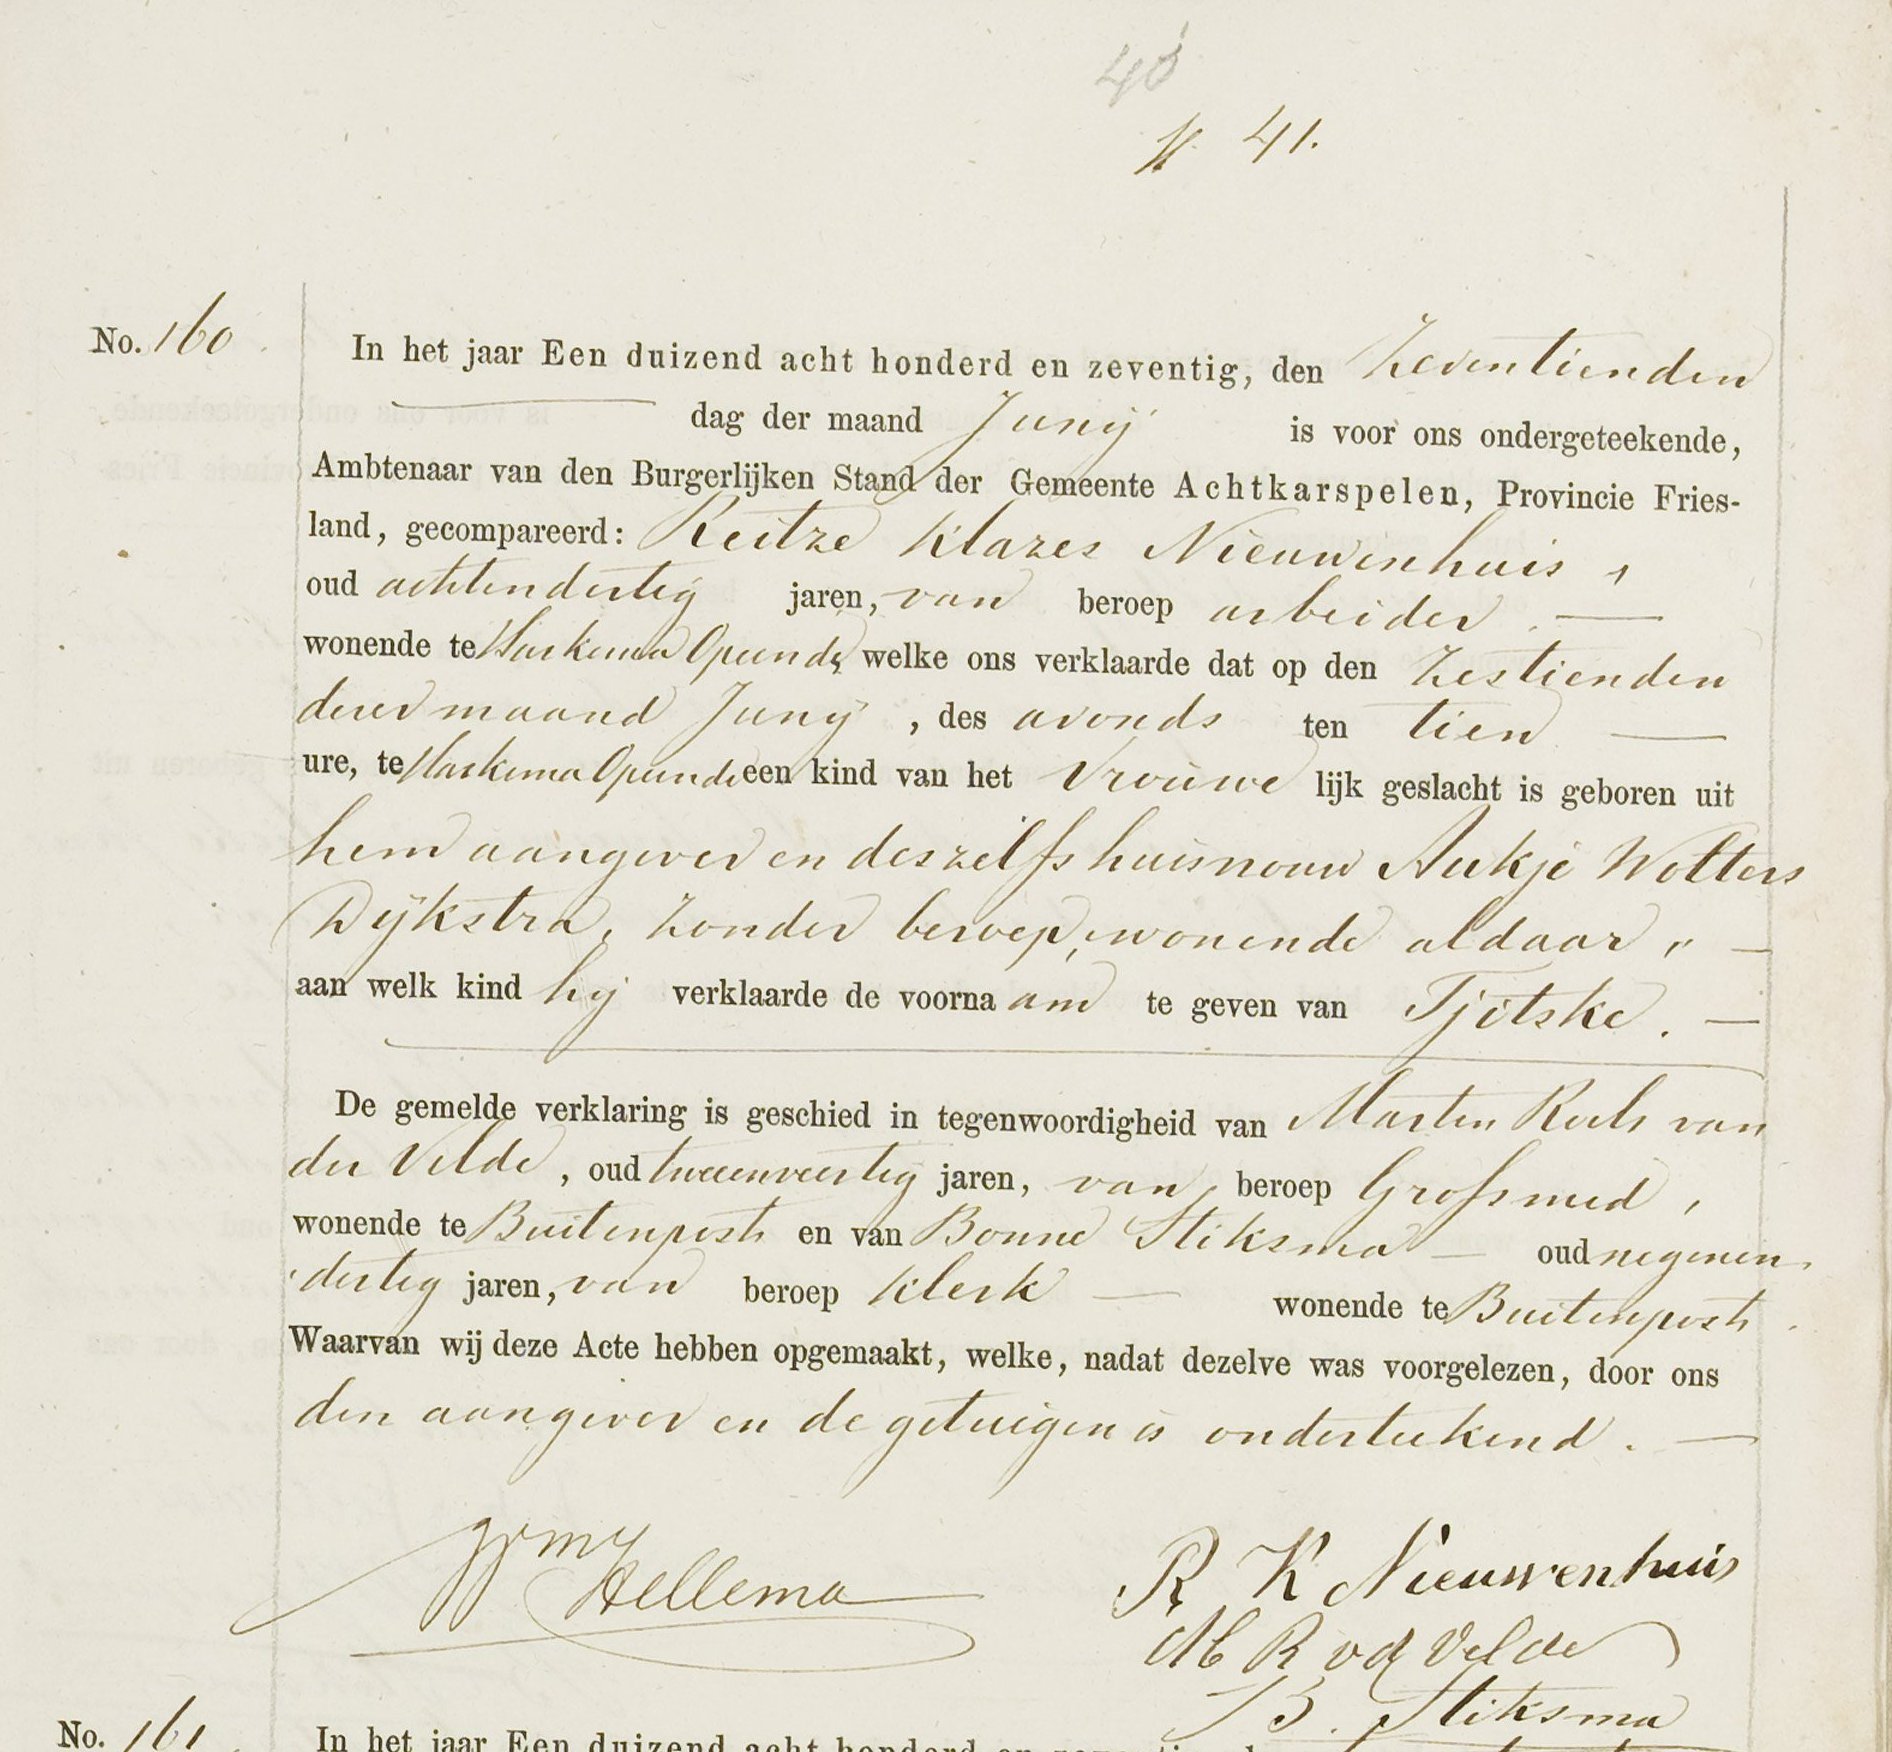 40
N. 41.
No. 160. In het jaar Een duizend acht honderd en zeventig, den Zeventienden
dag der maand Junij is voor ons ondergeteekende,
Ambtenaar van den Burgerlijken Stand der Gemeente Achtkarspelen, Provincie Fries-
land, gecompareerd: Reitze Klazes Nieuwenhuis,
oud achtendertig jaren, van beroep arbeider.
wonende te Harkema Opeinde, welke ons verklaarde dat op den Zestienden
dezer maand Junij, des avonds ten tien
ure, te Harkema Opeinde een kind van het Vrouwe lijk geslacht is geboren uit
hem aangever en deszelfs huisvrouw Aukje Wolters
Dijkstra, zonder beroep, wonende aldaar,
aan welk kind hij verklaarde de voorna am te geven van Tjitske.
De gemelde verklaring is geschied in tegenwoordigheid van Marten Roels van
der Velde, oud tweeenveertig jaren, van beroep Grofsmid,
wonende te Buitenpost en van Bonne Stiksma oud negenen
dertig jaren, van beroep Klerk wonende te Buitenpost.
Waarvan wij deze Acte hebben opgemaakt, welke, nadat dezelve was voorgelezen, door ons
den aangever en de getuigen is onderteekend.
Hellema
R K Nieuwenhuis
M R vd Velde
B. Stiksma
No. 161. In het jaar Een duizend acht honderd en